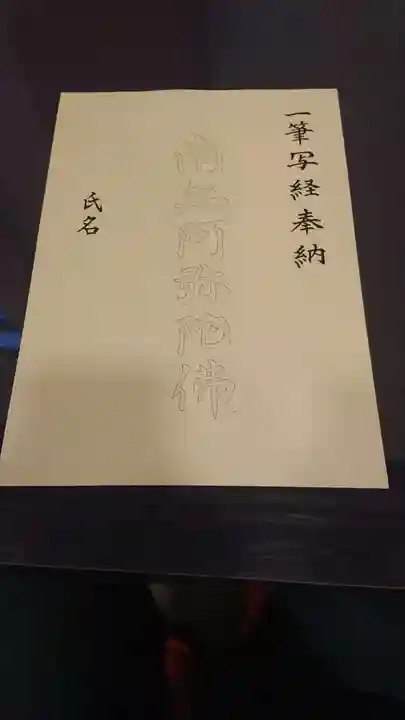 一筆写経奉納
南无阿弥陀佛
氏名